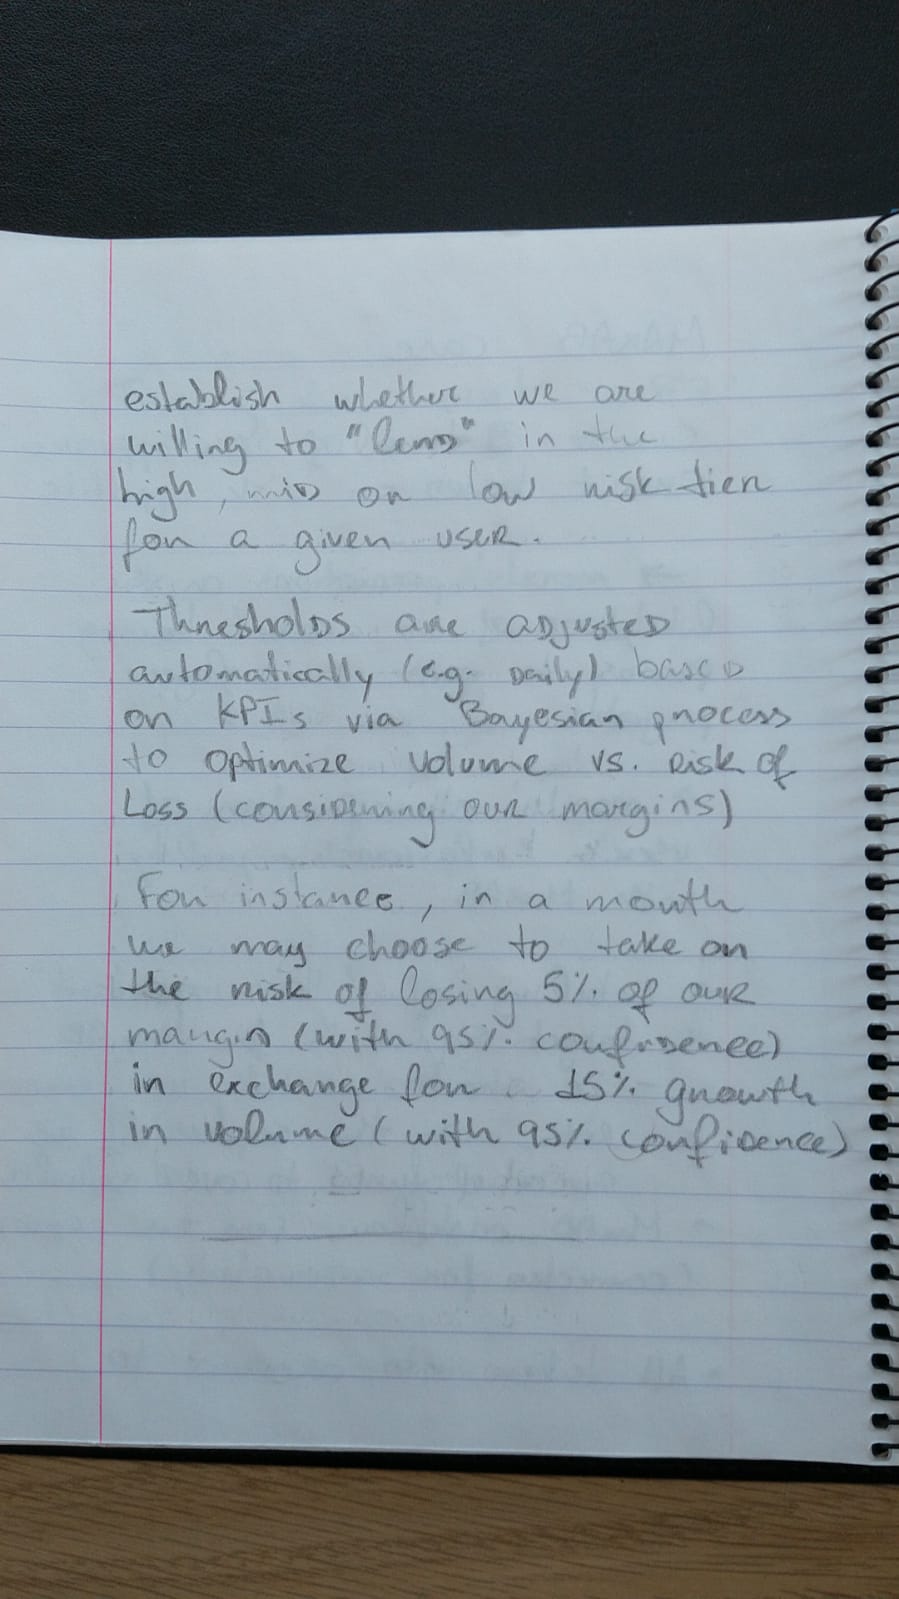 establish whether we are
willing to "lend" in the
high, mid or low risk tier
for a given user.
Thresholds are adjusted
automatically (e.g. daily) based
on KPIs via Bayesian process
to optimize volume vs. risk of
Loss (considering our margins)
For instance, in a month
we may choose to take on
the risk of losing 5% of our
margin (with 95% confidence)
in exchange for 15% growth
in volume (with 95% confidence)